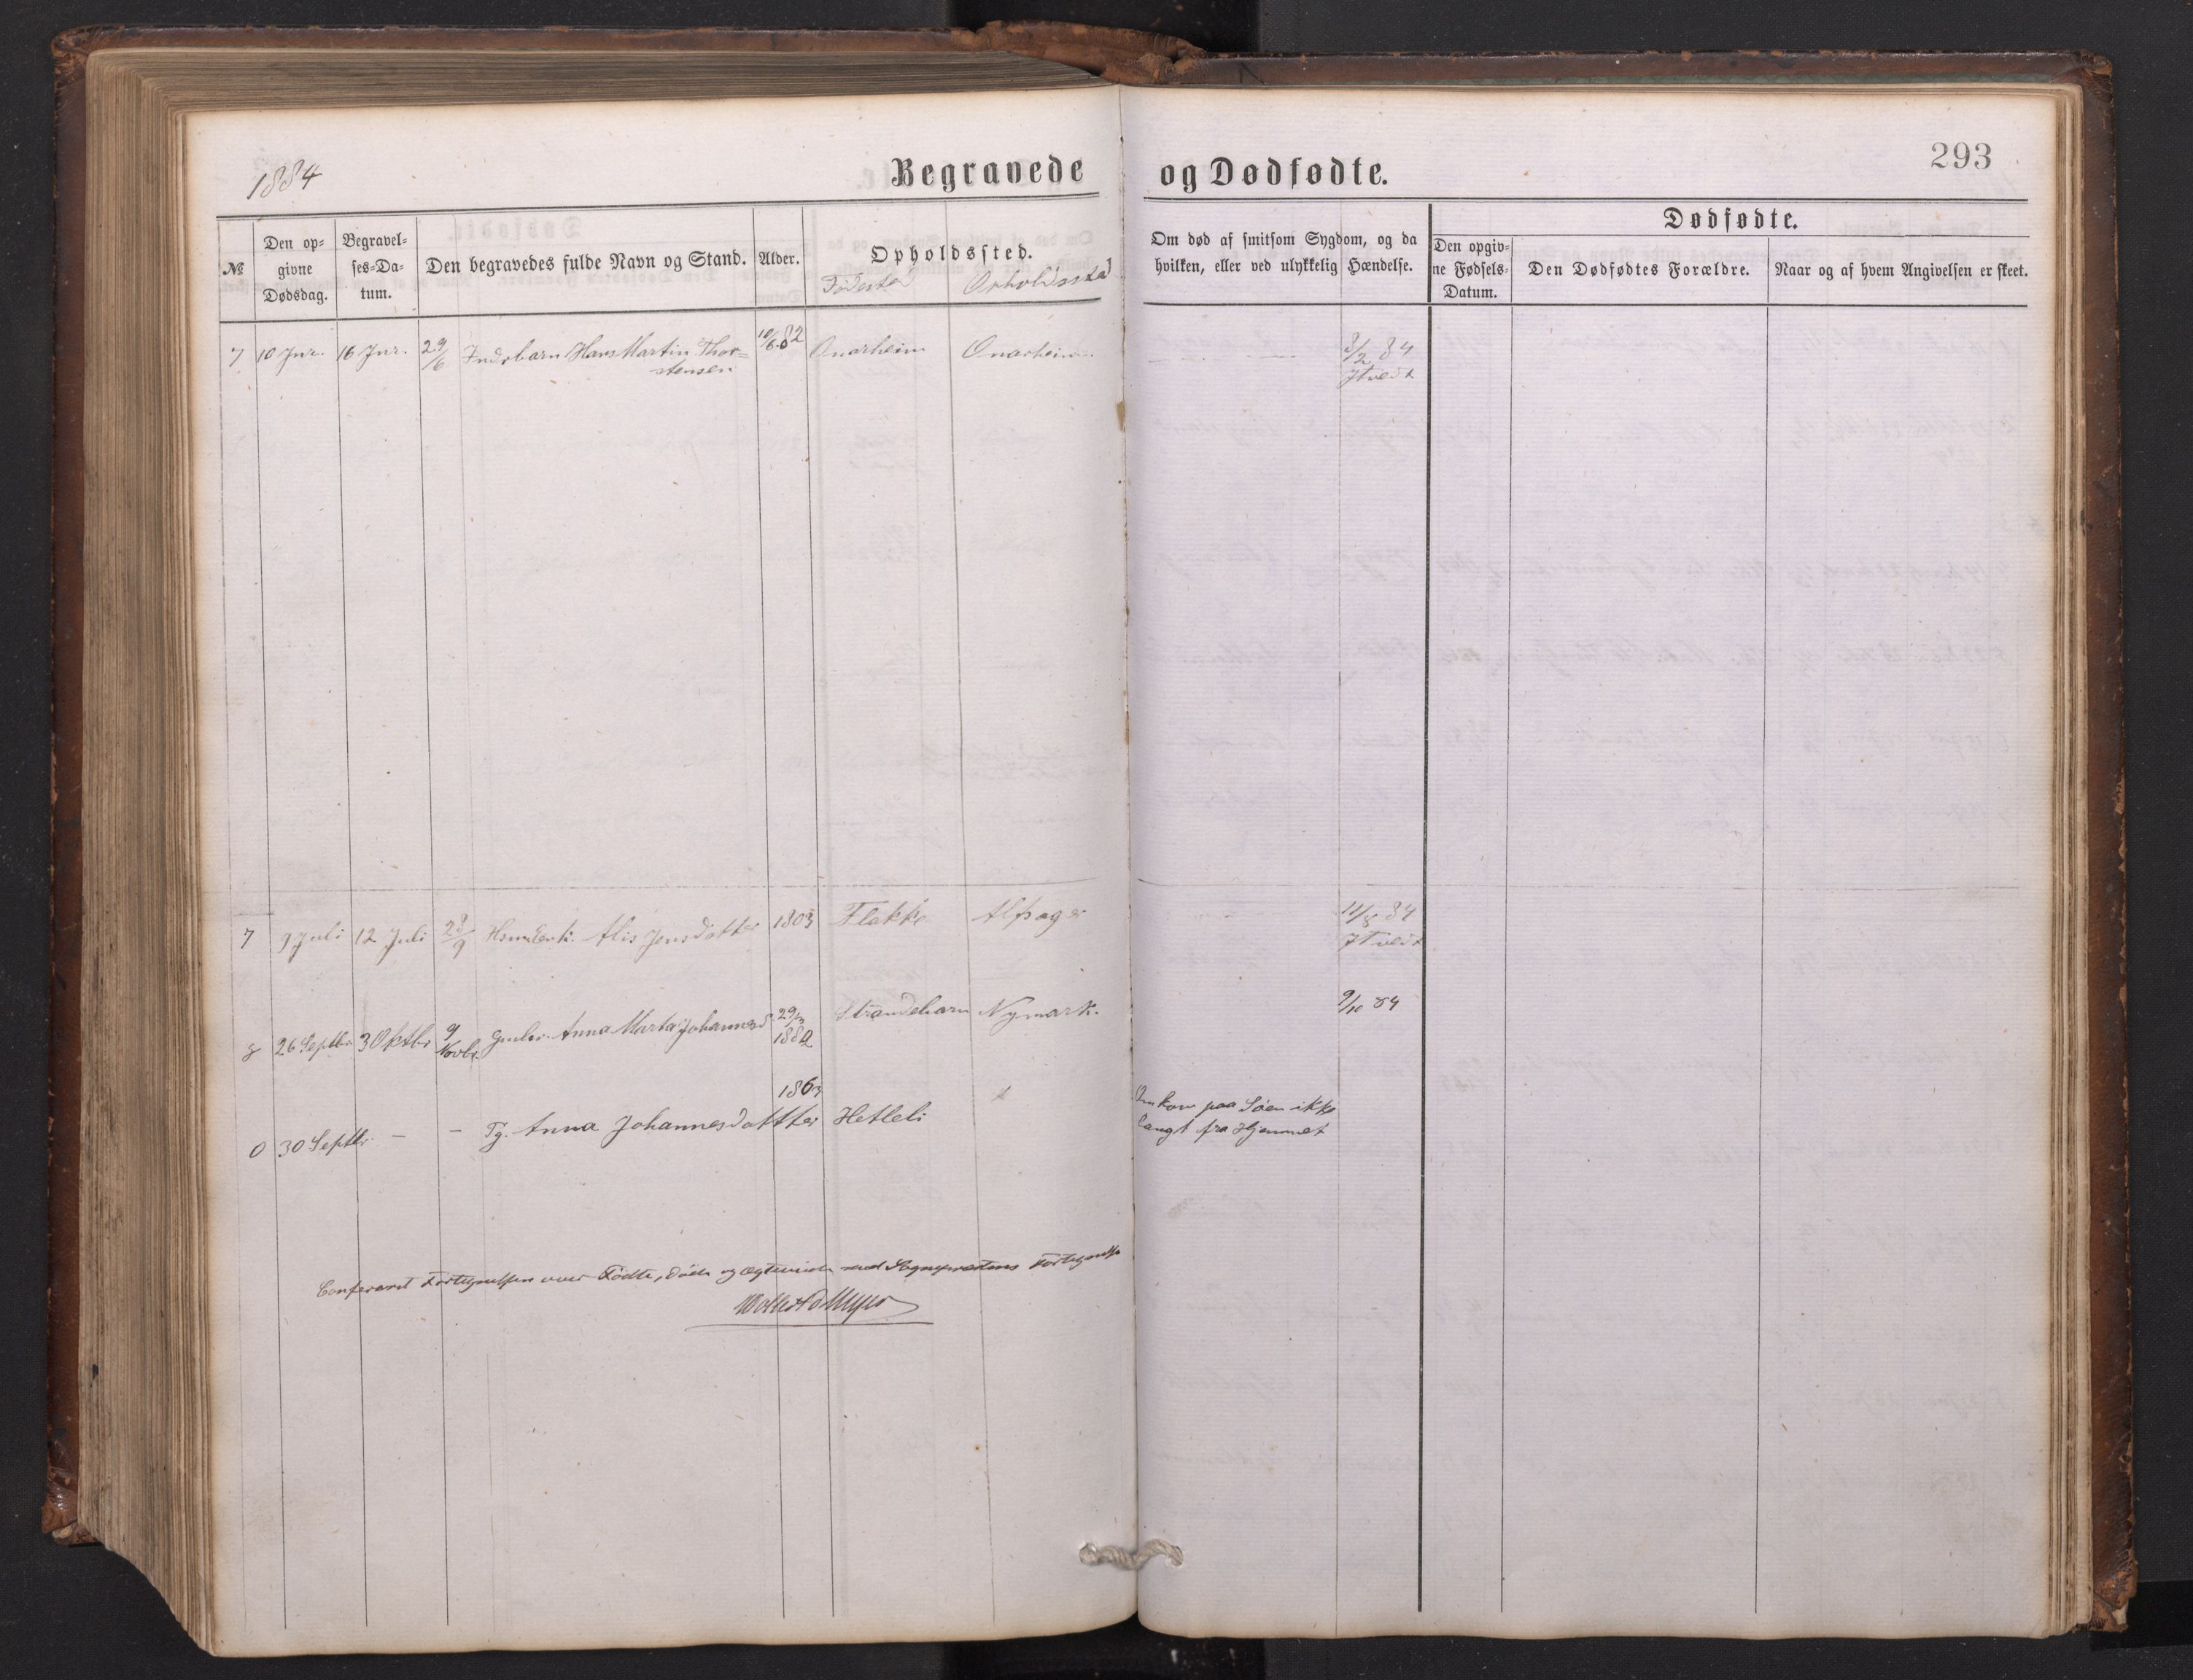 1884
Begravede og Dødfødte.
293
№
Den op-
givne
Dødsdag.
Begravel-
ses-Da-
tum.
Den begravedes fulde Navn og Stand.
Alder.
Opholdssted.
Fødested
Opholdssted
Om død af smitsom Sygdom, og da
hvilken, eller ved ulykkelig Hændelse.
Dødfødte.
Den opgiv-
ne Fødsels-
Datum.
Den Dødfødtes Forældre.
Naar og af hvem Angivelsen er skeet.
7 10 Jnr. 16 Jnr. 29/6 Inds barn Hans Martin Thor= 10/6 82 Onarheim Onarheim 8/2 84
stensen
JTvedt
7 9 Juli 12 Juli 28/9 Alis Jensdatter 1803 Flakke Alsager 11/8 84
JTvedt
8 26 Septbr 3 Oktbr 9 Anna Marta Johannesd 29/3 Strandebarm Nymark. 9/10 84
Novbr 1882
1863
0 30 Septbr. - - Pg. Anna Johannesdatter Hetleli
Omkom paa Søen ikke
langt fra Hjemmet
Confereret Fortegnelsen over Fødte, døde og ægteviede med Sognepræstens Fortegnelse